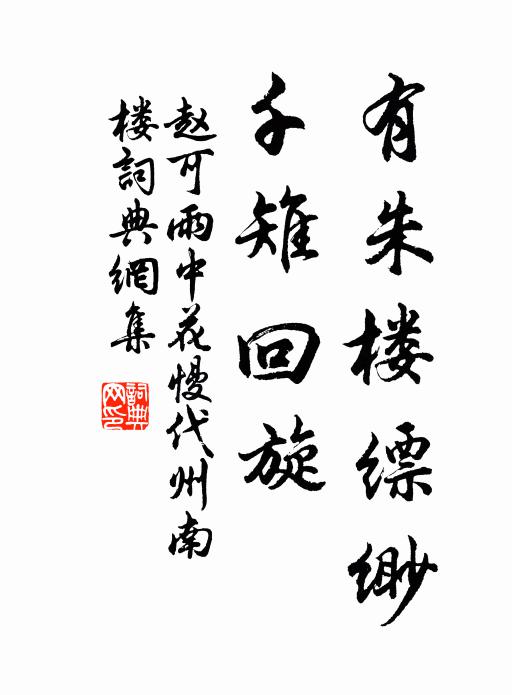 有朱楼缥缈
千雉回旋
赵可雨中花慢代州南
楼詞典網集
詞典
网印